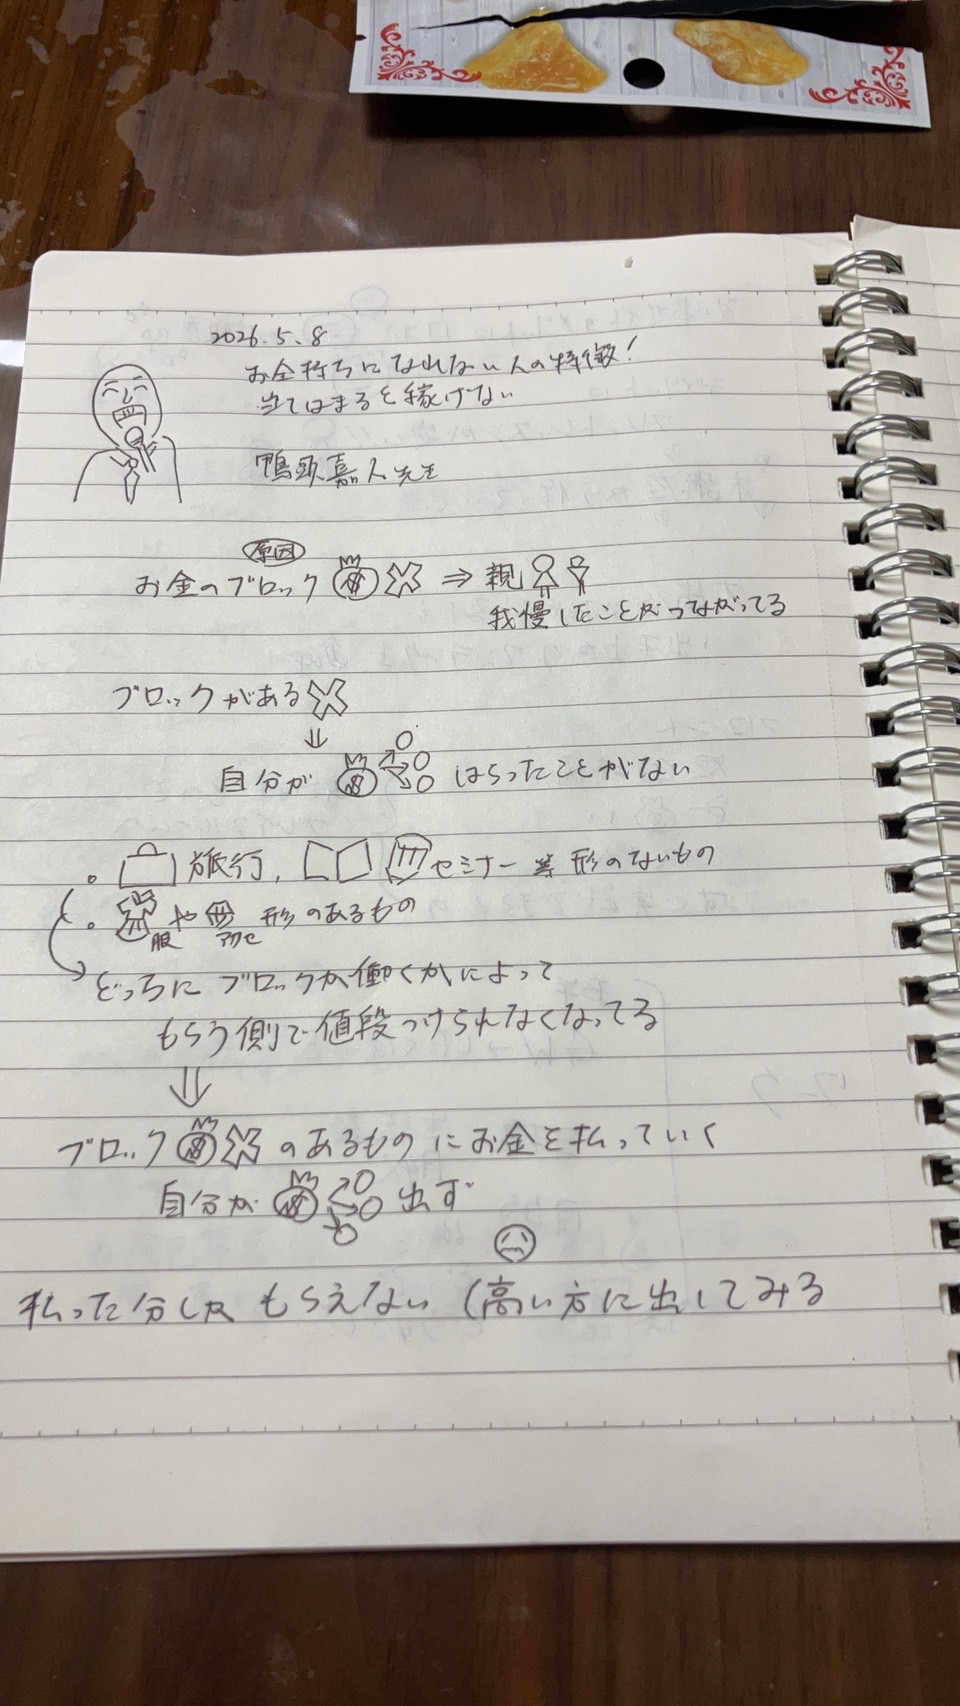 2026.5.8
お金持ちになれない人の特徴!
当てはまると稼げない
鴨頭嘉人先生
原因
お金のブロック ⇒ 親
我慢したことがつながってる
ブロックがある
⇓
自分が はらったことがない
・ 旅行, セミナー等 形のないもの
・ や 形のあるもの
服 アクセ
どっちにブロックが働くかによって
もらう側で値段つけられなくなってる
⇓
ブロック のあるものにお金を払っていく
自分が 出す
払った分しか もらえない (高い方に出してみる